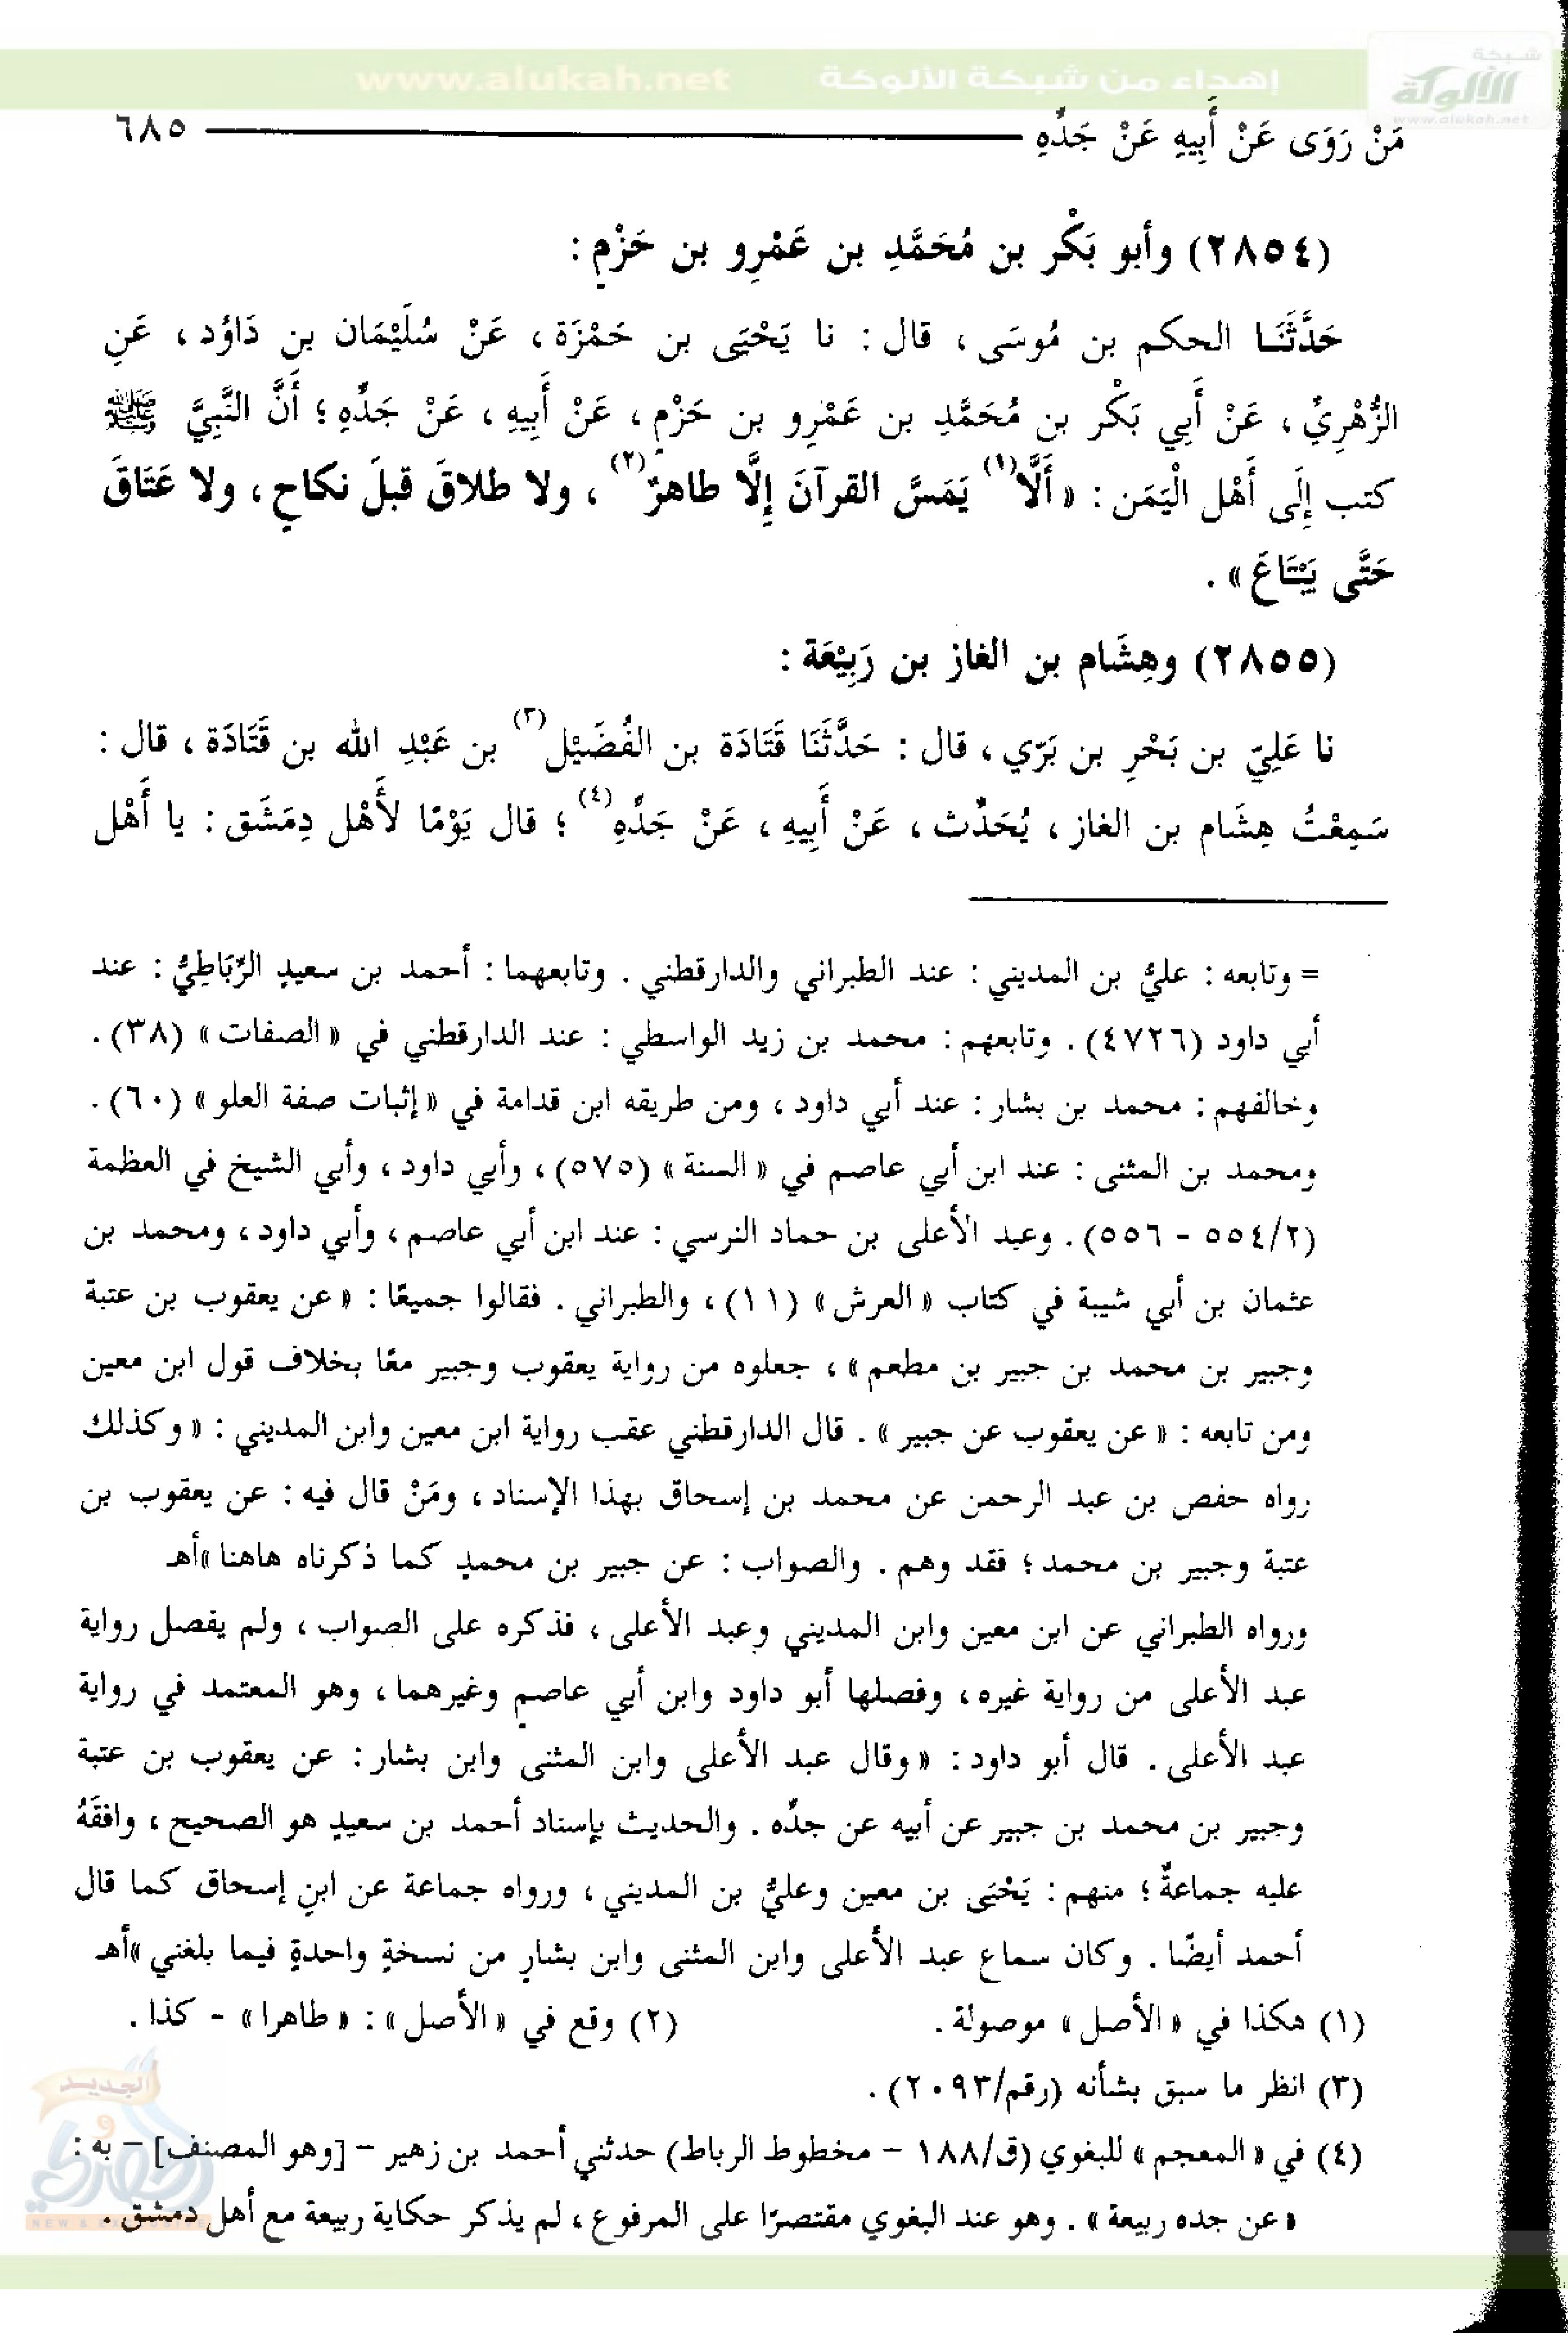 شبكة
الألوكة
www.alukah.net
إهداء من شبكة الألوكة
www.alukah.net
مَنْ رَوَى عَنْ أَبِيهِ عَنْ جَدِّهِ
٦٨٥
(٢٨٥٤) وأبو بَكْر بن مُحَمَّدِ بن عَمْرِو بن حَزْمٍ :
حَدَّثَنَا الحكم بن مُوسَى ، قال : نا يَحْيَى بن حَمْزَة ، عَنْ سُلَيْمَان بن دَاوُد ، عَنِ
الزُّهْرِيِّ ، عَنْ أَبِي بَكْر بن مُحَمَّدِ بن عَمْرِو بن حَزْمٍ ، عَنْ أَبِيهِ ، عَنْ جَدِّهِ ؛ أَنَّ النَّبِيَّ ﷺ
كتب إِلَى أَهْل الْيَمَن : « أَلَّا(١) يَمَسَّ القرآنَ إِلَّا طاهرٌ(٢) ، ولا طلاقَ قبلَ نكاحٍ ، ولا عَتَاقَ
حَتَّى يَبْتَاعَ » .
(٢٨٥٥) وهِشَام بن الغاز بن رَبِيْعَة :
نا عَلِيّ بن بَحْرِ بن بَرّي ، قال : حَدَّثَنَا قَتَادَة بن الفُضَيْل(٣) بن عَبْدِ الله بن قَتَادَة ، قال :
سَمِعْتُ هِشَام بن الغاز ، يُحَدِّث ، عَنْ أَبِيهِ ، عَنْ جَدِّهِ(٤) ؛ قال يَوْمًا لأَهْل دِمَشَق : يا أَهْل
= وتابعه : عليُّ بن المديني : عند الطبراني والدارقطني . وتابعهما : أحمد بن سعيدٍ الرِّبَاطِيُّ : عند
أبي داود (٤٧٢٦) . وتابعهم : محمد بن زيد الواسطي : عند الدارقطني في « الصفات » (٣٨) .
وخالفهم : محمد بن بشار : عند أبي داود ، ومن طريقه ابن قدامة في « إثبات صفة العلو » (٦٠) .
ومحمد بن المثنى : عند ابن أبي عاصم في « السنة » (٥٧٥) ، وأبي داود ، وأبي الشيخ في العظمة
(٢/ ٥٥٤ - ٥٥٦) . وعبد الأعلى بن حماد النرسي : عند ابن أبي عاصم ، وأبي داود ، ومحمد بن
عثمان بن أبي شيبة في كتاب « العرش » (١١) ، والطبراني . فقالوا جميعًا : « عن يعقوب بن عتبة
وجبير بن محمد بن جبير بن مطعم » ، جعلوه من رواية يعقوب وجبير معًا بخلاف قول ابن معين
ومن تابعه : « عن يعقوب عن جبير » . قال الدارقطني عقب رواية ابن معين وابن المديني : « وكذلك
رواه حفص بن عبد الرحمن عن محمد بن إسحاق بهذا الإسناد ، ومَنْ قال فيه : عن يعقوب بن
عتبة وجبير بن محمد ؛ فقد وهم . والصواب : عن جبير بن محمدٍ كما ذكرناه هاهنا »أهـ
ورواه الطبراني عن ابن معين وابن المديني وعبد الأعلى ، فذكره على الصواب ، ولم يفصل رواية
عبد الأعلى من رواية غيره ، وفصلها أبو داود وابن أبي عاصمٍ وغيرهما ، وهو المعتمد في رواية
عبد الأعلى . قال أبو داود : « وقال عبد الأعلى وابن المثنى وابن بشار : عن يعقوب بن عتبة
وجبير بن محمد بن جبير عن أبيه عن جدِّه . والحديث بإسناد أحمد بن سعيدٍ هو الصحيح ، وافقَهُ
عليه جماعةٌ ؛ منهم : يَحْيَى بن معين وعليُّ بن المديني ، ورواه جماعة عن ابنِ إسحاق كما قال
أحمد أيضًا . وكان سماع عبد الأعلى وابن المثنى وابن بشارٍ من نسخةٍ واحدةٍ فيما بلغني »أهـ
(١) هكذا في « الأصل » موصولة .
(٢) وقع في « الأصل » : « طاهرا » - كذا .
(٣) انظر ما سبق بشأنه (رقم/٢٠٩٣) .
(٤) في « المعجم » للبغوي (ق/١٨٨ - مخطوط الرباط) حدثني أحمد بن زهير - [وهو المصنف] - به :
« عن جده ربيعة » . وهو عند البغوي مقتصرًا على المرفوع ، لم يذكر حكاية ربيعة مع أهل دمشق .
الجديد
و
الحصري
NEW & EXCLUSIVE